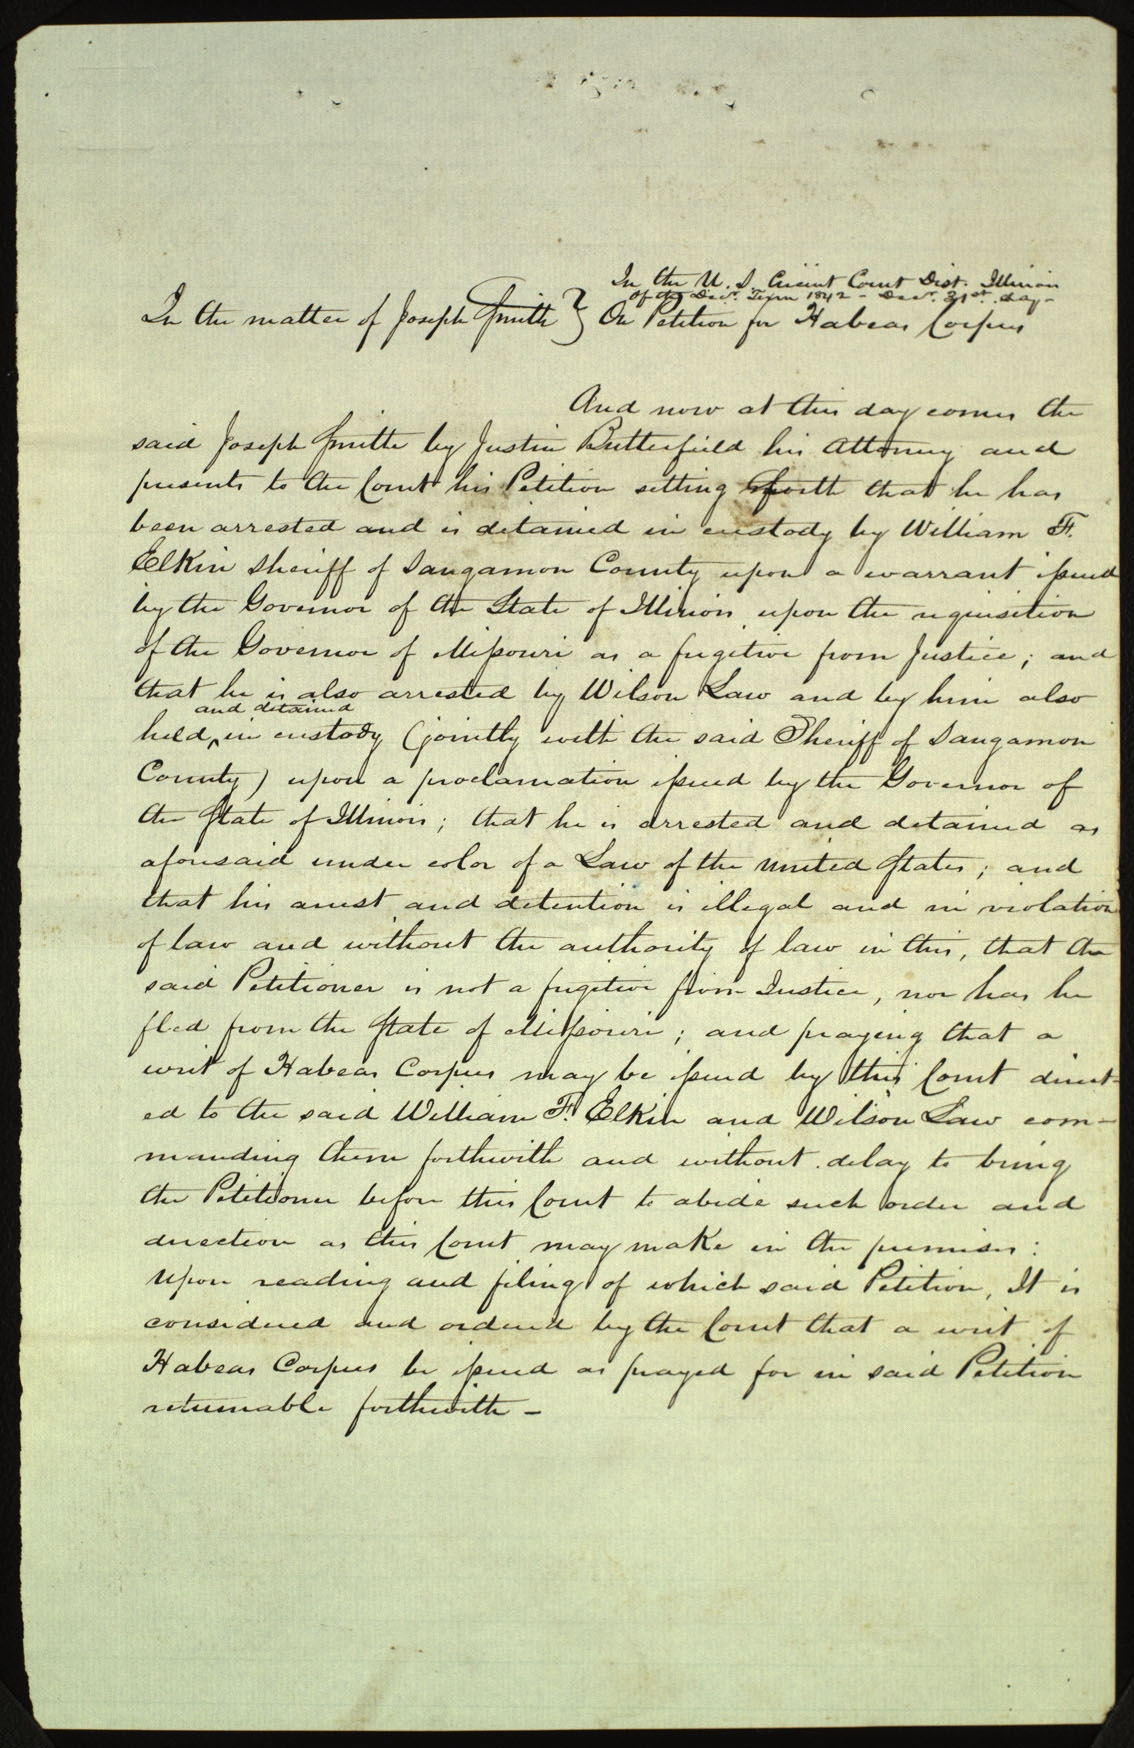 In the U. S. Circuit Court Dist. Illinois
Of the Decr. Term 1842 - Decr. 31st day -
In the matter of Joseph Smith } On Petition for Habeas Corpus
And now at this day comes the
said Joseph Smith by Justin Butterfield his Attorney and
presents to the Court his Petition setting forth that he has
been arrested and is detained in custody by William F.
Elkin Sheriff of Sangamon County upon a warrant issued
by the Governor of the State of Illinois, upon the requisition
of the Governor of Missouri as a fugitive from Justice; and
that he is also arrested by Wilson Law and by him also
and detained
held ^ in custody (jointly with the said Sheriff of Sangamon
County) upon a proclamation issued by the Governor of
the State of Illinois; that he is arrested and detained as
aforesaid under color of a Law of the United States; and
that his arrest and detention is illegal and in violation
of law and without the authority of law in this, that the
said Petitioner is not a fugitive from Justice, nor has he
fled from the State of Missouri; and praying that a
writ of Habeas Corpus may be issued by this Court direct-
ed to the said William F. Elkin and Wilson Law com-
manding them forthwith and without delay to bring
the Petitioner before this Court to abide such order and
direction as this Court may make in the premises:
Upon reading and filing of which said Petition, It is
considered and ordered by the Court that a writ of
Habeas Corpus be issued as prayed for in said Petition
returnable forthwith -